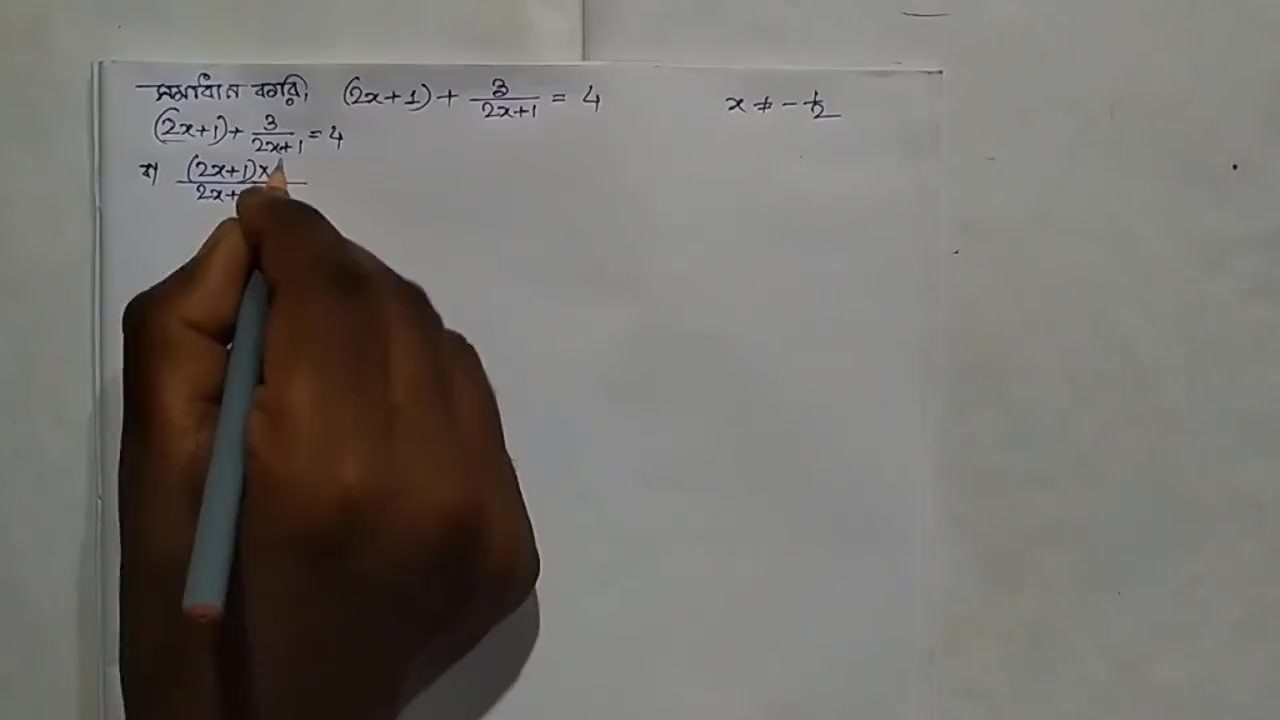 সমাধান করি। (2x+1) + 3/(2x+1) = 4 x ≠ -1/2
(2x+1) + 3/(2x+1) = 4
বা (2x+1)×/2x+